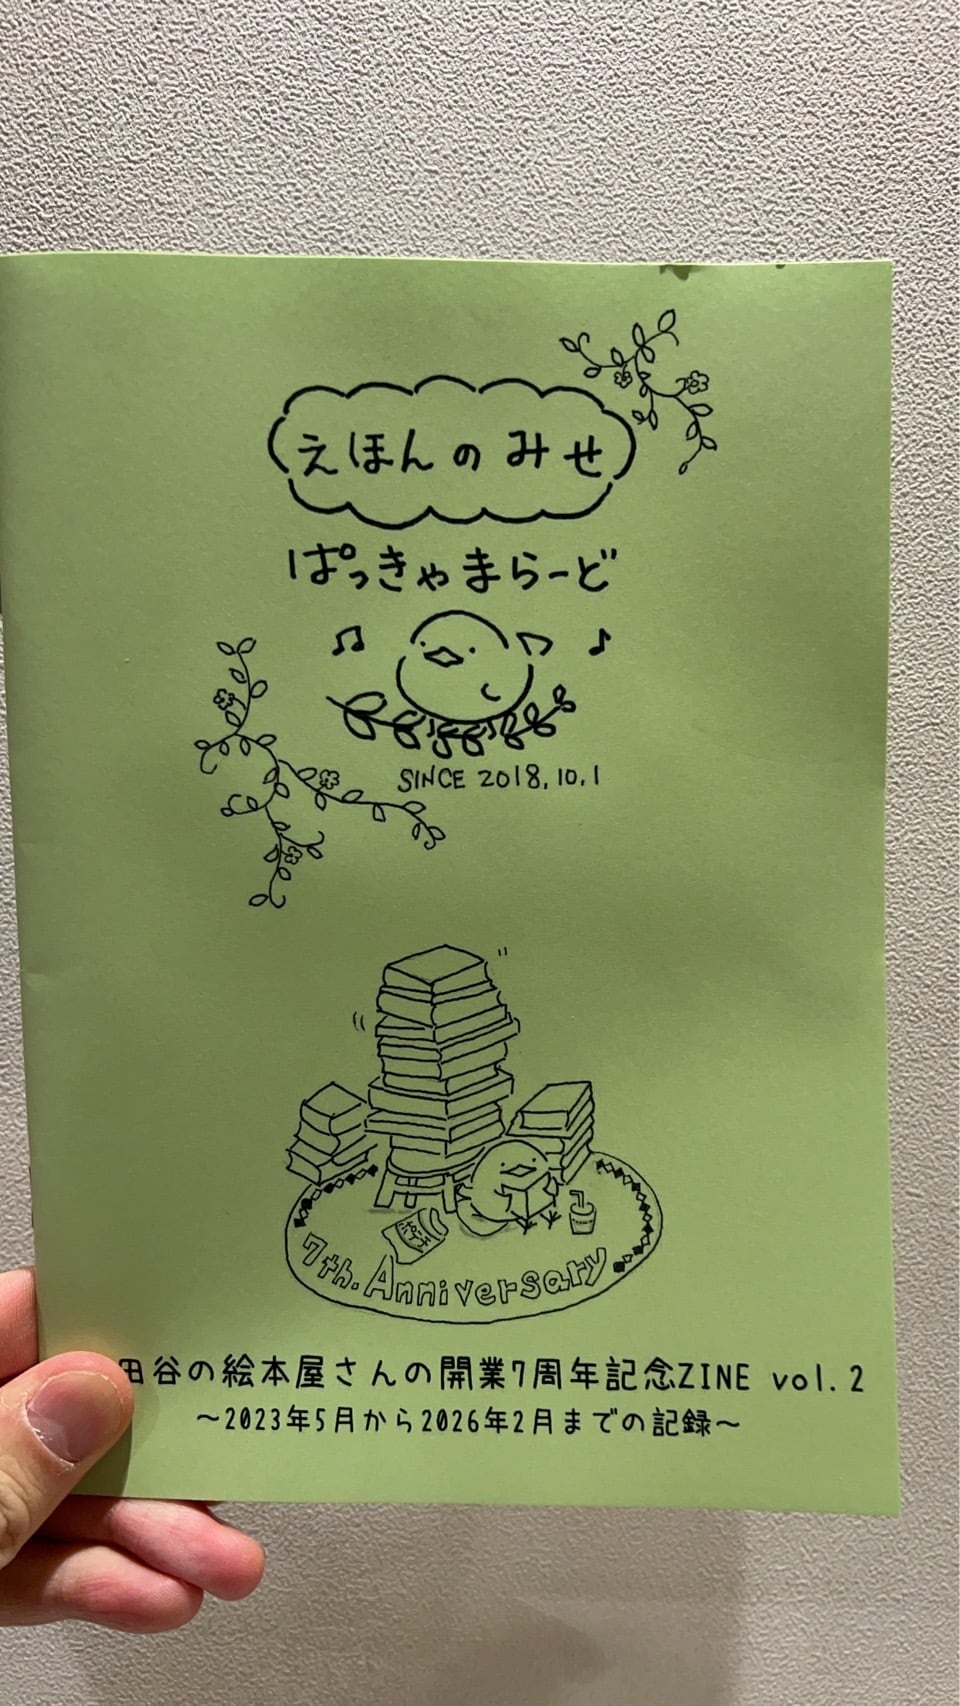 えほんのみせ
ぱっきゃまらーど
SINCE 2018.10.1
ポテチ
7th. Anniversary
田谷の絵本屋さんの開業7周年記念ZINE vol.2
～2023年5月から2026年2月までの記録～